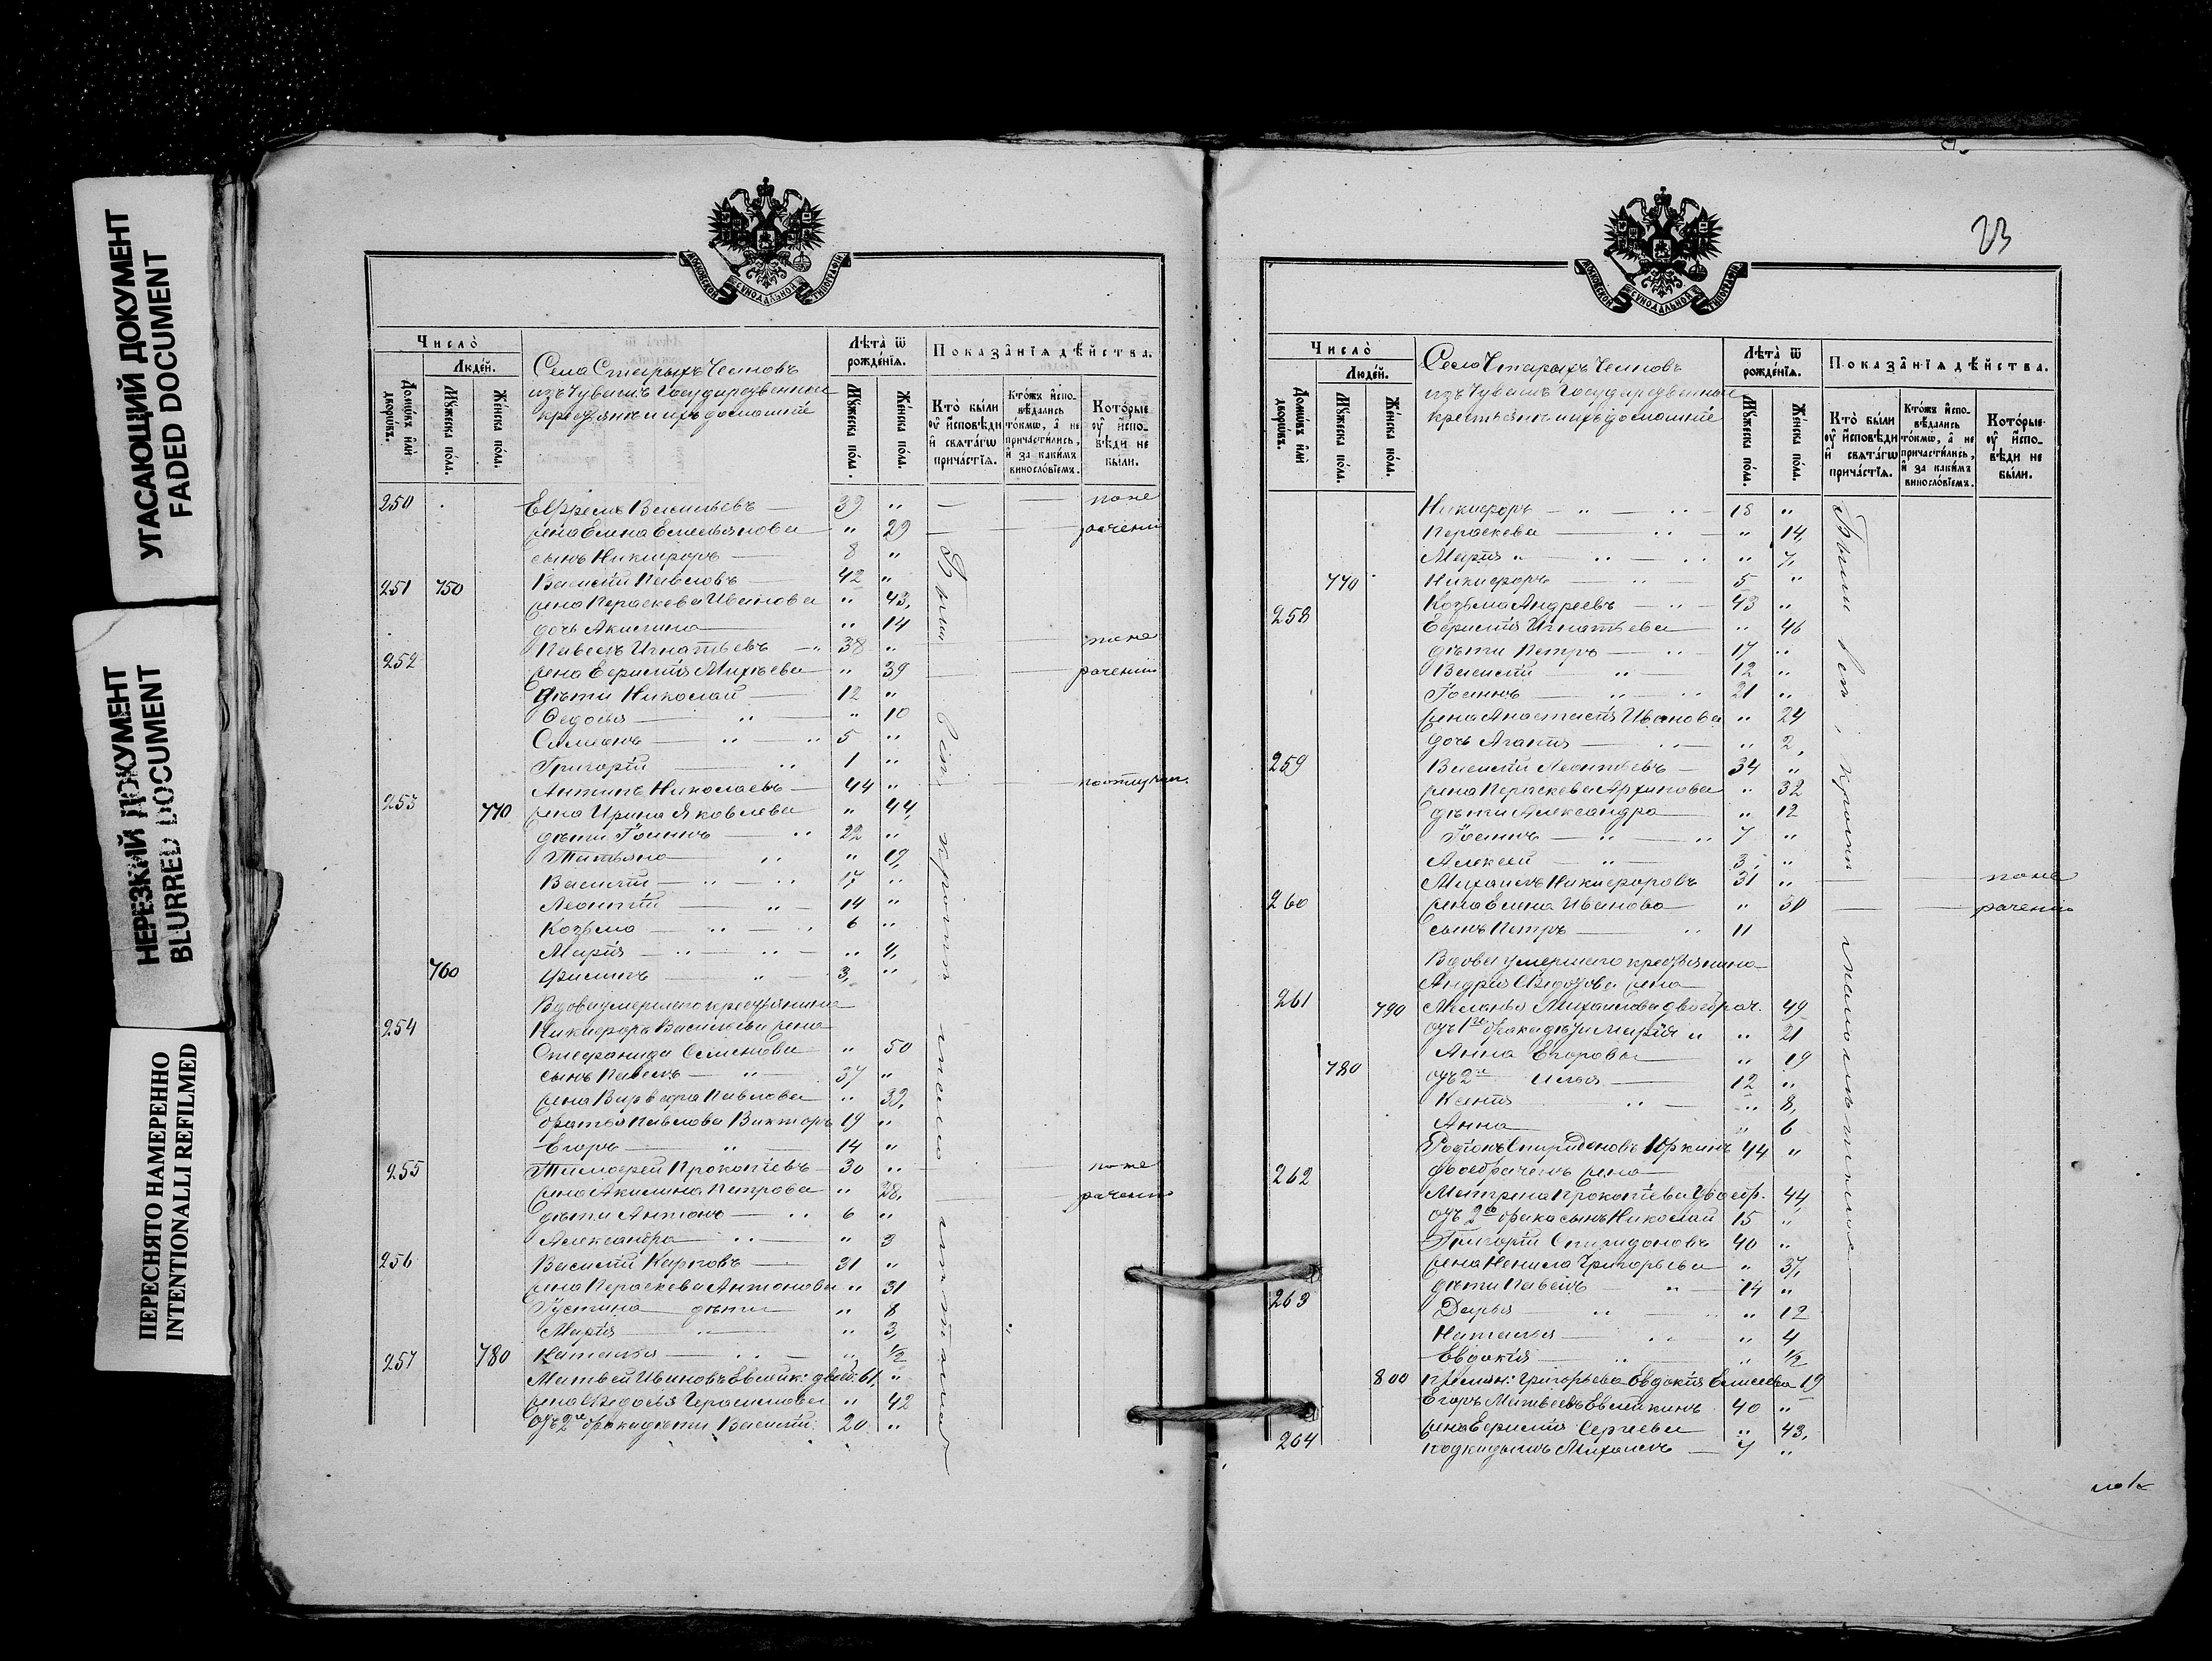 УГАСАЮЩИЙ ДОКУМЕНТ
FADED DOCUMENT
НЕРЕЗКИЙ ДОКУМЕНТ
BLURRED DOCUMENT
ПЕРЕСНЯТО НАМЕРЕННО
INTENTIONALLI REFILMED
МОСКОВСКОЙ СѴНОДАЛЬНОЙ ТИПОГРАФІИ
Число̀
Люде́й.
Домѡ́въ и҆лѝ дворѡ́въ.
Мꙋ́жеска по́ла.
Же́нска по́ла.
Села Старыхъ Челновъ
изъ Чувашъ Государственные
крестьяне и ихъ домашніе
Лѣта̀ ѿ рожде́нїѧ.
Мꙋ́жеска по́ла.
Же́нска по́ла.
Показа̑нїѧ дѣ́йства.
Кто̀ были ᲂу҆ и҆сповѣди и҆ свѧта́гѡ прича́стїѧ.
Кто́жъ и҆спо-вѣ́дались то́кмѡ, а҆ не причасти́лись, и҆ за каки́мъ винословїемъ.
Кото́рые ᲂу҆ и҆спо-вѣди не были.
250 Ефремъ Васильевъ 39 " — — поне
жена Елена Емельянова " 29 — — рачению
сынъ Никифоръ 8 "
251 750 Василій Павловъ 42 "
жена Параскева Иванова " 43,
дочь Акилина " 14
252 Павелъ Игнатьевъ 38 " — поне
жена Евдокія Михѣева " 39 — рачению
дѣти Николай 12 "
Ѳедосья " " 10
Симеонъ " 5 "
Григорій " 1 "
253 Антипъ Николаевъ 44 " — —
770 жена Ирина Яковлева " 44,
дѣти Іоаннъ " 22 "
Татьяна " " 19,
Василій " 17, "
Леонтій " 14 "
Козьма " 6 "
Марія " " 4,
760 Филипъ " 3, "
Вдова умершаго крестьянина
254 Никифора Васильева жена
Стефанида Семенова " 50
сынъ Павелъ " 37 "
жена Варвара Павлова " 39,
братья Павлова Викторъ 19 "
Егоръ " 14 "
255 Тимофей Прокопіевъ 30 " поне
жена Акилина Петрова " 28, — рачению
дѣти Антонъ " 6 "
Александра " " 3
256 Василій Карповъ 31 "
жена Параскева Антонова " 31
Іустина дѣти " 8
Марія " " 3,
780 Наталья " " 1/2
257 Матвей Ивановъ Евлейк: двоеб: 61, "
жена Ѳедосья Герасимова " 42
отъ 2го брака дѣти Василій. 20 "
Были всѣ кромѣ
23
Число̀
Люде́й.
Домѡ́въ и҆лѝ дворѡ́въ.
Мꙋ́жеска по́ла.
Же́нска по́ла.
Село Старыхъ Челновъ
изъ Чувашъ Государственные
крестьяне и ихъ домашніе
Лѣта̀ ѿ рожде́нїѧ.
Мꙋ́жеска по́ла.
Же́нска по́ла.
Показа̑нїѧ дѣ́йства.
Кто̀ были ᲂу҆ и҆сповѣди и҆ свѧта́гѡ прича́стїѧ.
Кто́жъ и҆спо-вѣ́дались то́кмѡ, а҆ не причасти́лись, и҆ за каки́мъ винословїемъ.
Кото́рые ᲂу҆ и҆спо-вѣди не были.
Никифоръ " " 18 "
Параскева " " 14,
Марія " " " " 7,
770 Никифоръ " 5 "
258 Козьма Андреевъ " 43 "
Евдокія Игнатьева " 46
дѣти Петръ " 17 "
Василій " 12 "
Іоаннъ " " 21 "
жена Анастасія Иванова " 24
дочь Агапія " " 2,
259 Василій Леонтьевъ 34 "
жена Параскева Архипова " 32
дѣти Александра " 12
Іоаннъ " " 7 "
Алексей " 3, "
260 Михаилъ Никифоровъ 31 " — — поне
жена Елена Иванова " 30 — — рачению
сынъ Петръ " 11
Вдова умершаго крестьянина
Андрія Ѳедотова жена
261 790 Меланья Михайлова двоебрач. 49
отъ 1го брака дѣти Марія " " 21
Анна Егоровы " 19
780 отъ 2го Илья 12 "
Ксенія " " 8,
Анна " 6
262 Родіонъ Спиридоновъ Юркинъ 44 "
двоебраченъ жена
Матрена Прокопіева двоебр. 44,
отъ 2го брака сынъ Николай 15 "
263 Григорій Спиридоновъ 40 "
жена Ненила Григорьева " 37,
дѣти Павелъ " 14 "
Дарья " " 12
Наталья " " 4
Евдокія " " 1/2
800 Григорьева Евдокія Елисеева 19
264 Егоръ Матвеевъ Евлейкинъ 40 "
жена Евдокія Сергеева " 43,
подкидышъ Михаилъ 7 "
Были всѣ, кромѣ малолѣтнихъ